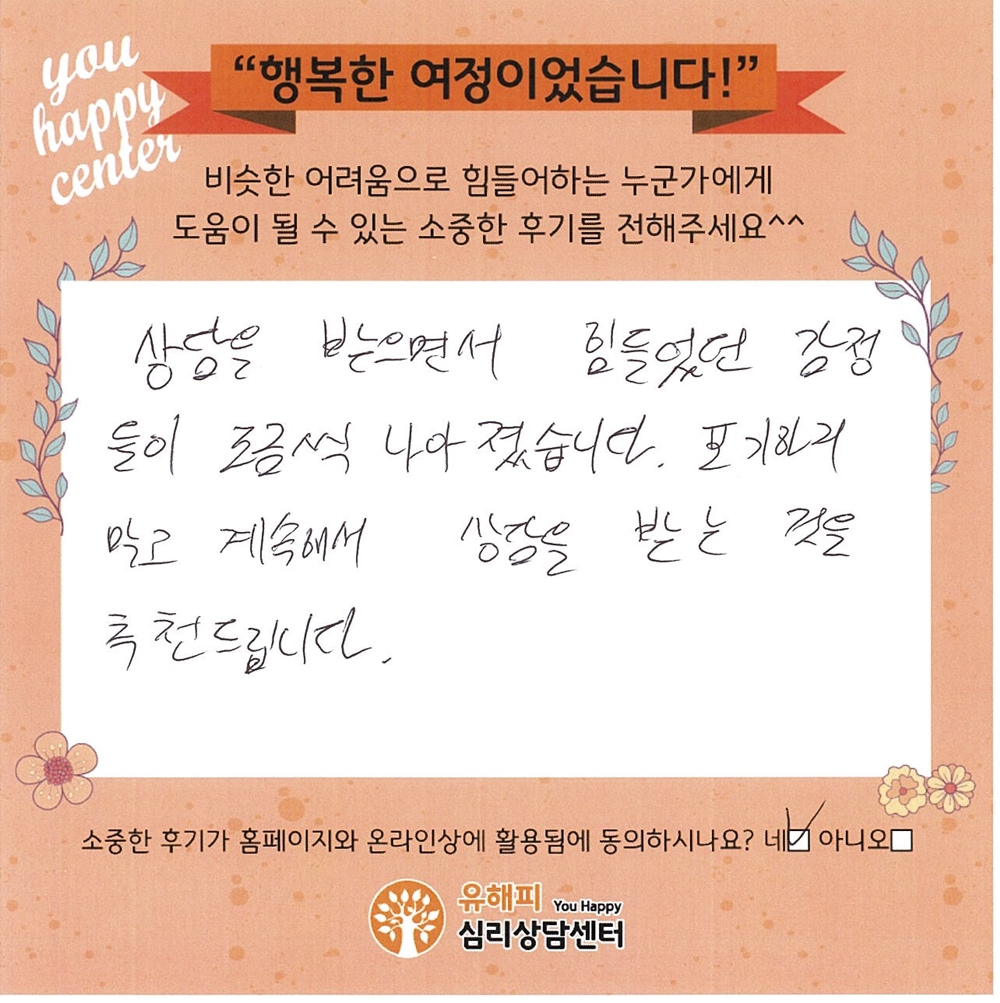 you
happy
center
“행복한 여정이었습니다!”
비슷한 어려움으로 힘들어하는 누군가에게
도움이 될 수 있는 소중한 후기를 전해주세요^^
상담을 받으면서 힘들었던 감정
들이 조금씩 나아졌습니다. 포기하지
말고 계속해서 상담을 받는 것을
추천드립니다.
소중한 후기가 홈페이지와 온라인상에 활용됨에 동의하시나요? 네☑ 아니오☐
유해피 You Happy
심리상담센터